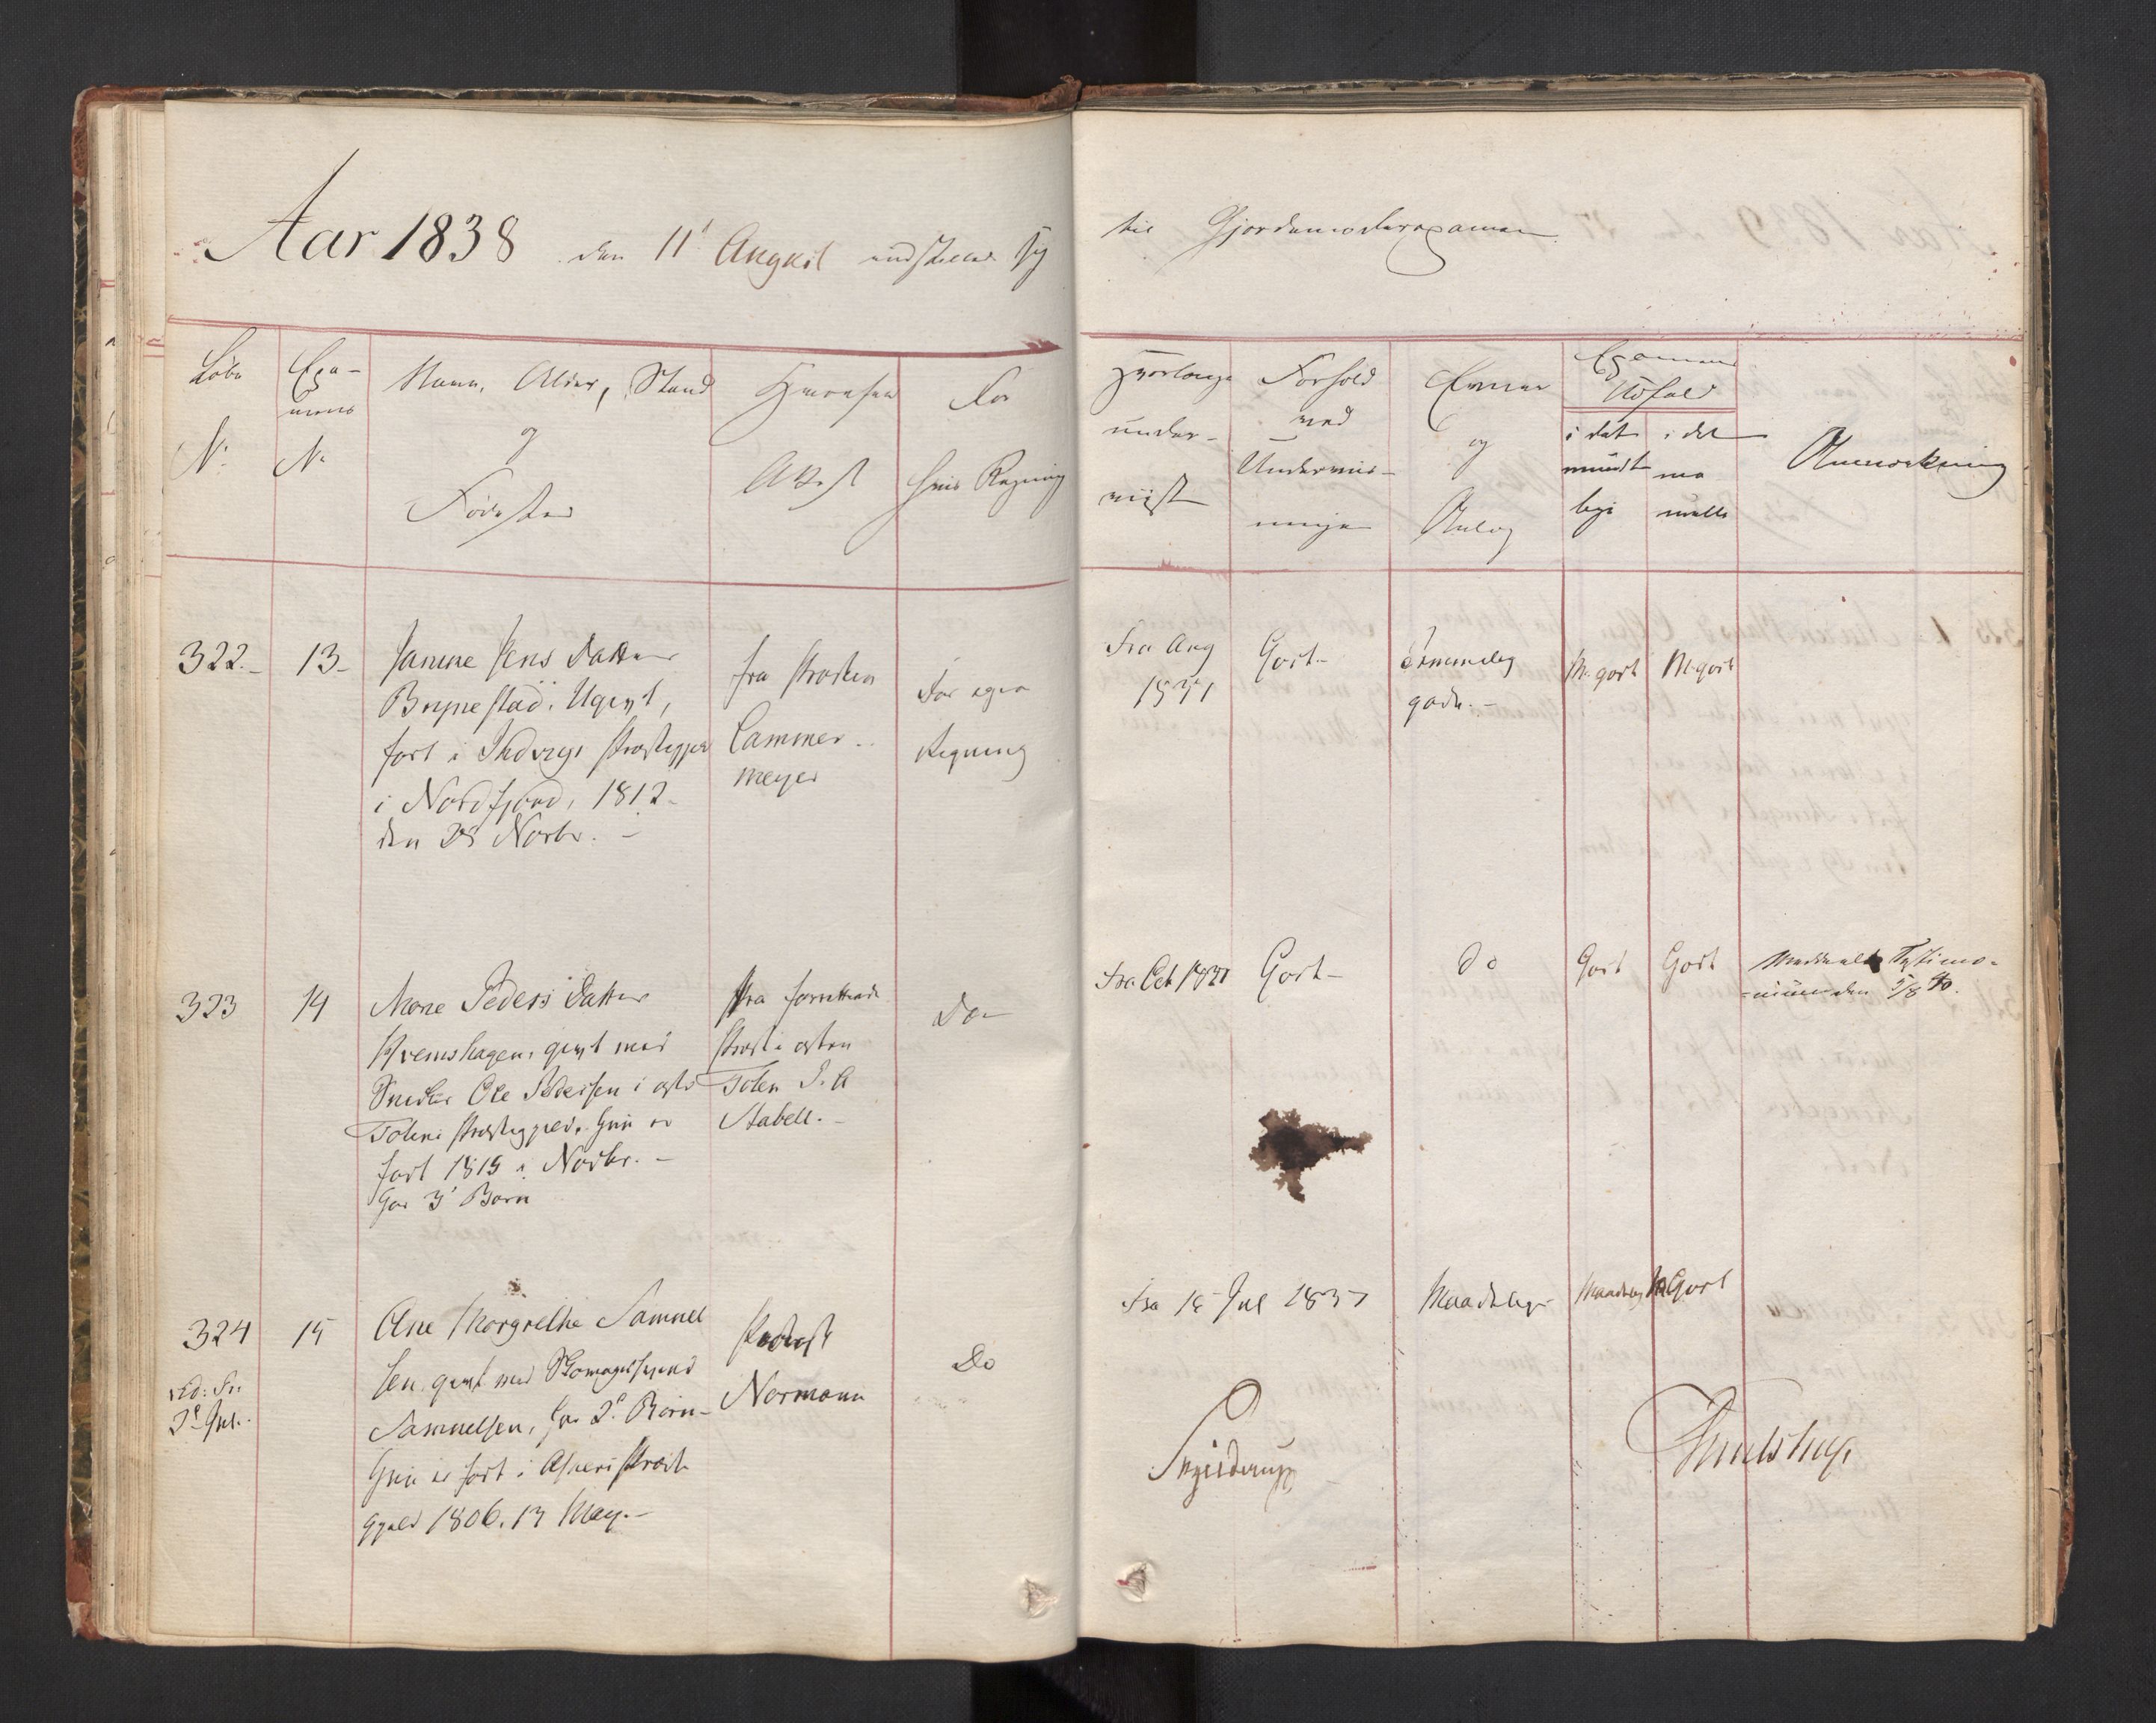 Aar 1838 den 11' August indstiller sig
til Gjordemoderexamen
Løbe
N:
Exa-
mens
N:
Navn, Alder, Stand
og
Fødested
Hvorfra
Attest
For
hvis Regning
Hvorlænge
under-
viist
Forhold
ved
Underviis-
ningen
Evner
og
Anlæg
Examens
Udfald
i det
mundt
lige
i det
ma
nuelle
Anmærkning
322.-
13-
Janne Jens Datter
Brynestad. Ugivt,
født i Præstegjæld
i Nordfjord, 1812-
den 28 Novbr. -
fra Præsten
Cammer-
meyer
For egen
Regning
Fra Aug
1837
Godt-
temmelig
gode.-
M.godt
M.godt
323
14
Marie Peders Datter
givt med
Snedker Ole Pedersen i østr
Totens Præstegjeld. Hun er
født 1815 i Novbr. -
har 3 Børn
Fra
Præst i østen
Toten P. A
Stabell.-
Do-
Fra Oct 1837
Godt-
do
Godt
Godt
Testimo-
nium den 5/8 40.
324
15
Ane Margrethe Samuel
sen, givt med Skomagersvend
Samuelsen, har 2 Børn-
Hun er født i Askers Præste
gjæld 1806. 13 May.-
Provst
Normann
Do
Fra 18 Jul 1837
Maadelige
Maadelig
M Godt
Ingierderupp